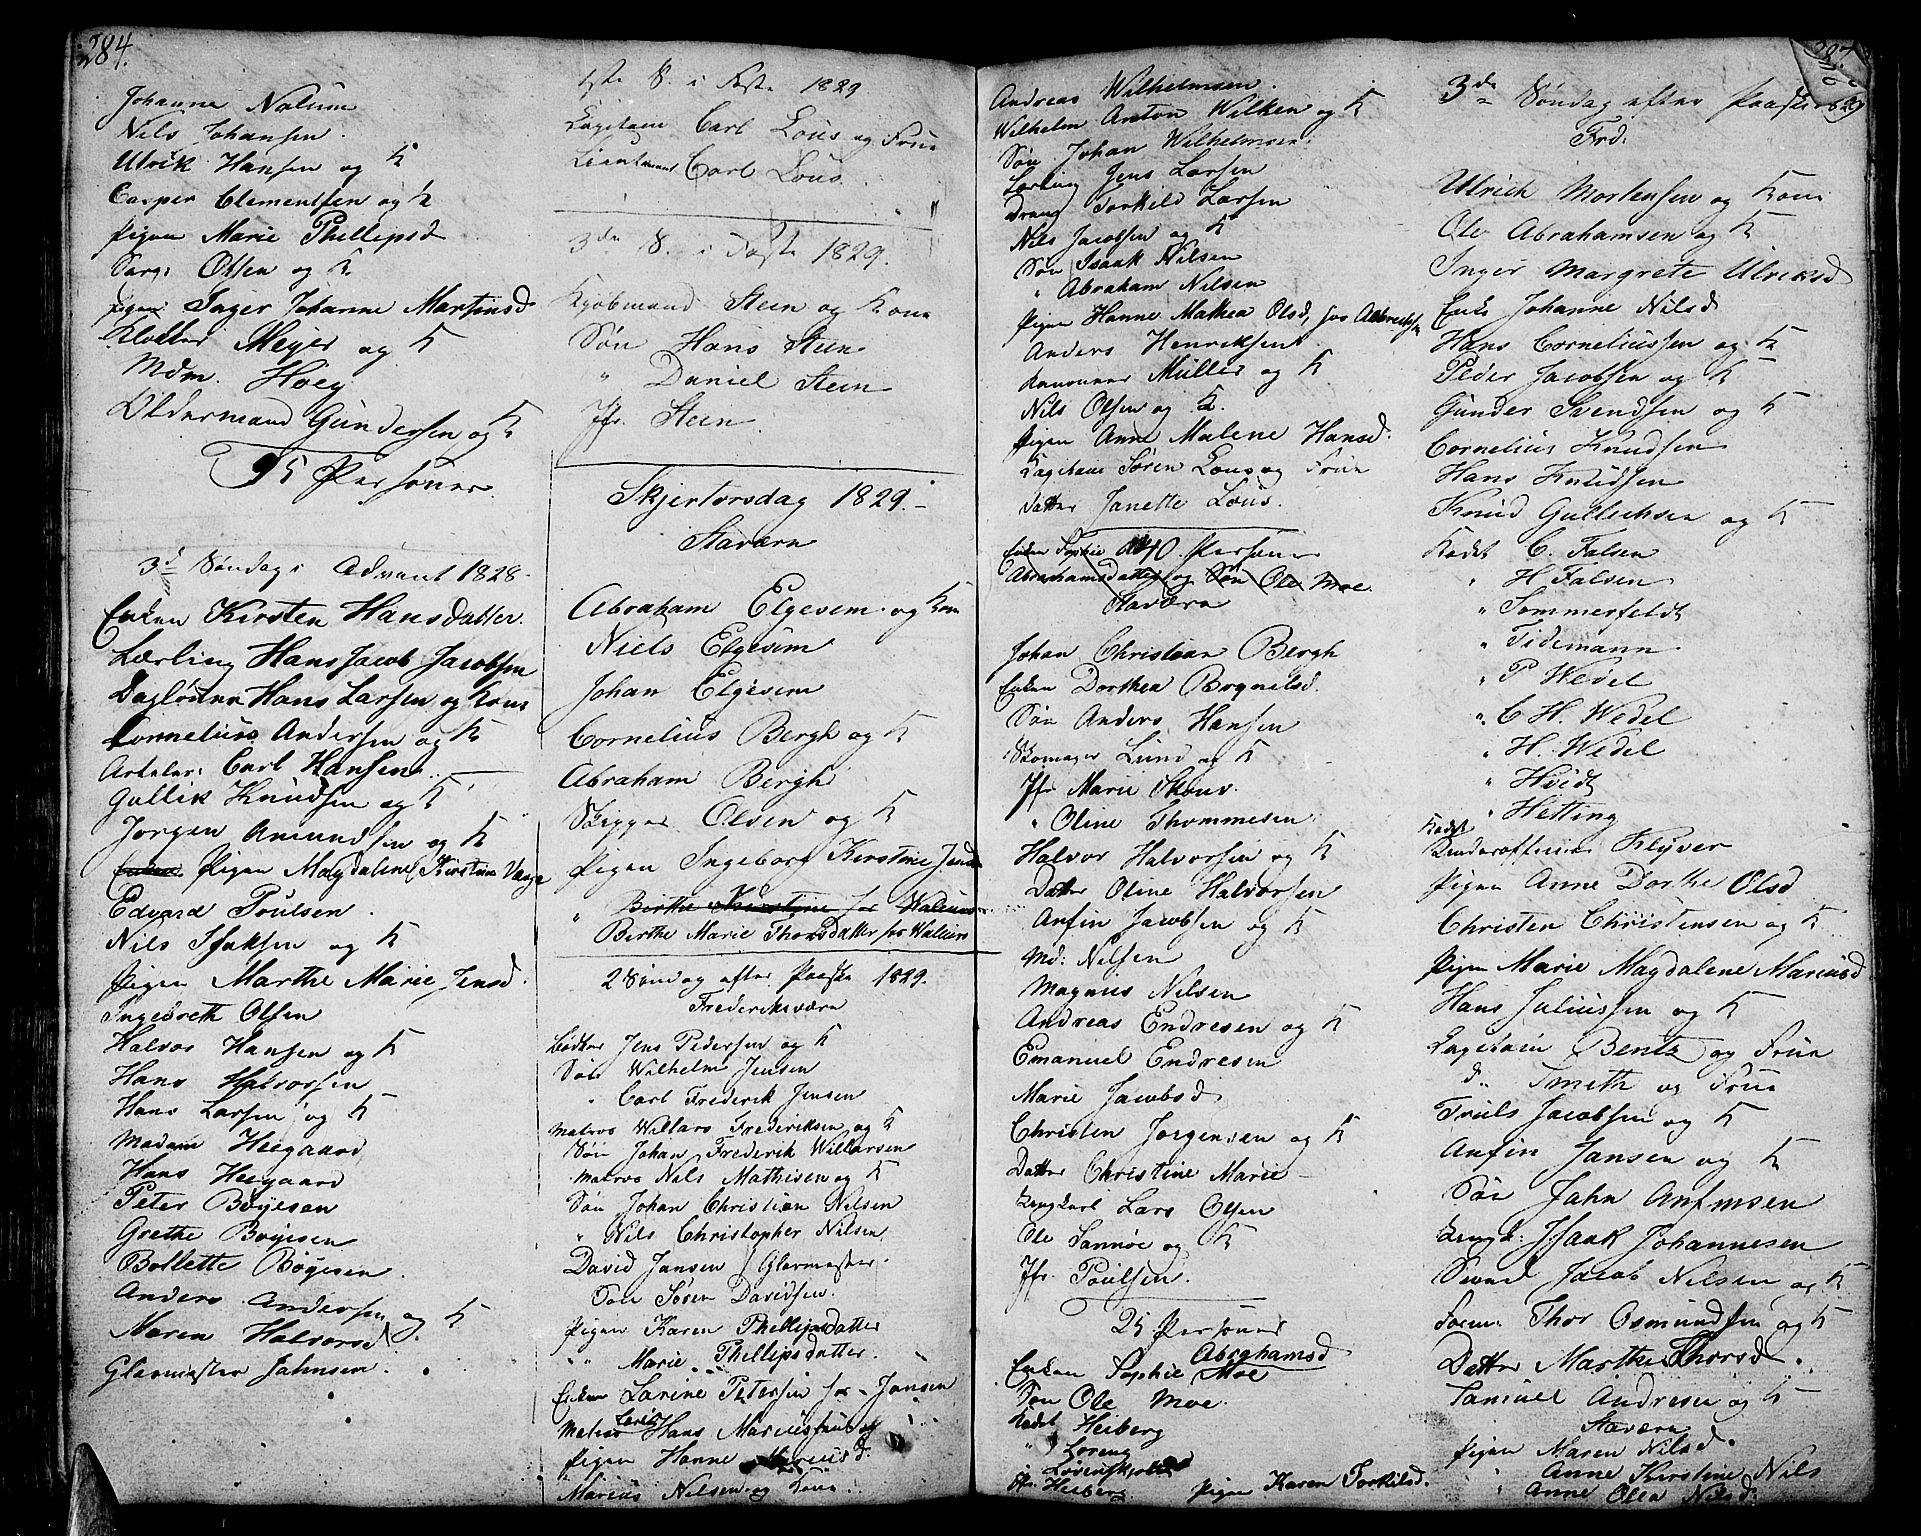 284.
Johanne Nalum
Nils Johansen.
Ulrik Hansen og K
Casper Clementsen og K
Pigen Marie Phillipsd
Sarg: Olsen og K
Pigen Inger Johanne Martinsd
Klokker Meyer og K
Mdm. Hoeg
Oldermand Gundersen og K
95 Personer
3d Søndag i Advent 1828
Enken Kirsten Hansdatter.
Lærling Hans Jacob Jacobsen
Dagløner Hans Larsen og Kone
Cornelius Andersen og K
Carl Hansen
Gullik Knudsen og K
Jørgen Amundsen og K
Pigen Magdalene Kirstine
Edvard Poulsen.
Nils Isaksen og K
Pigen Marthe Marie Jensd.
Ingebreth Olsen
Halvor Hansen og K
Hans Halvorsen
Hans Larsen og K
Madam Heegaard
Hans Heegaard
Peter Bøyesen
Grethe Bøyesen
Bollette Bøyesen.
Anders Andersen og K
Maren Halvorsd.
Glarmester Jahnsen.
1ste S. i Faste 1829
Capitain Carl Lous og Frue
Lieutnant Carl Lous.
3de S. i Faste 1829.
Kjøbmand Steen og Kone
Søn Hans Steen
" Daniel Steen
Jfr. Steen
Skjertorsdag 1829.
Staværn
Abraham Elgesem og Kone
Niels Elgesem
Johan Elgesem
Cornelius Bergh og K
Abraham Bergh
Skipper Olsen og K
Pigen Ingeborg Kirstine
" Birthe
" Birthe Marie Thorsdatter hos
2 Søndag efter Paaske 1829.
Frederiksværn
Bødker Jens Pedersen og K
Søn Wilhelm Jensen
" Carl Frederik Jensen
Matros Willars Frederiksen og K
Søn Johan Frederik Willarsen
Matros Nils Mathisen og K
Søn Johan Christian Nilsen
" Nils Christopher Nilsen
David Jansen Glarmester.
Søn Søren Davidsen.
Pigen Karen Phillipsdatter
" " Marie Phillipsdatter.
Enken Larine Petersen hos Jansen
Matros Hans
Pigen Hanne
Marius Nilsen og Kone
Andreas Wilhelmsen.
Wilhelm Anton Wilken og K
Søn Johan Wilhelmsen.
Lærling Jens Larsen
Dreng Torkild Larsen
Nils Jacobsen og K
Søn Isaak Nilsen
" Abraham Nilsen
Pigen Hanne Mathea Olsd, hos
Anders Henriksen
Müller og K
Nils Olsen og K.
Pigen Anne Malene Hansd.
Capitain Søren Lous og Frue
Datter Janette Lous.
40 Personer
Enken Sophie
Abrahamsdatter og Søn Ole Moe.
Staværn
Johan Christian Bergh
Enken Dorthea Brynelsd.
Søn Anders Hansen
Skomager Lund og K
Jfr Marie
" Oline Thommesen
Halvor Halvorsen og K
Datter Oline Halvorsen
Anfin Jacobsen og K
Md: Nilsen
Magnus Nilsen
Andreas Endresen og K
Emanuel Endresen
Marie Jacobsd
Christen Jørgensen og K
Datter Christine Marie
Lars Olsen
Ole Sannøe og K
Jfr. Poulsen.
25 Personer
Enken Sophie Abrahamsd Moe
Søn Ole Moe.
Kadet Heiberg
" Lorens
Heiberg
Pigen Karen Torkilsd.
3de Søndag efter Paaske 1829
Frd:
Ulrich Mortensen og Kone
Ole Abrahamsen og K
Inger Margrete Ulriksd
Enke Johanne Nilsd
Hans Corneliussen og K
Peder Jacobsen og K
Gunder Svendsen og K
Cornelius Knudsen
Hans Knudsen
Knud Gullichsen og K
Kadet C. Falsen
" H. Falsen
" Sommerfeldt
" Tidemann
" P Wedel
" C H. Wedel
" H. Wedel
" Hvidt
" Hetting
Kadet Underofficier Klyver
Pigen Anne Dorthe Olsd
Christen Christensen og K
Pigen Marie Magdalene Mariusd
Hans Juliussen og K
Capitain Bentz og Frue
d. Smith og Frue
Truls Jacobsen og K
Anfin Jansen og K
Søn Jahn Anfinsen
Isaak Johannesen
Svend Jacob Nilsen og K
Thor Osmundsen og K
Datter Marthe Thorsd.
Samuel Andresen og K
Staværn
Pigen Maren Nilsd.
" Anne Kirstine Nils
" Anne Olea Nilsd.